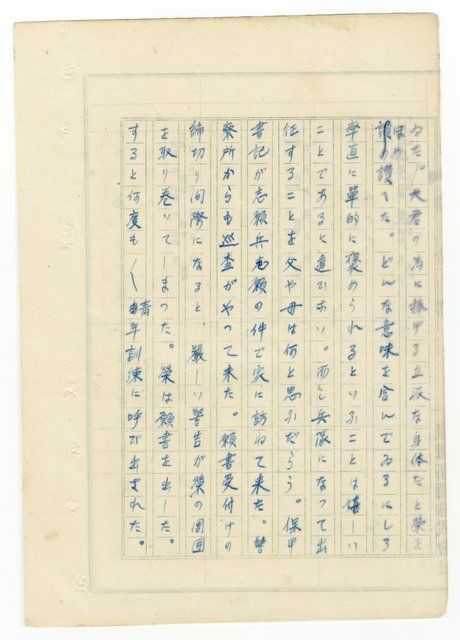 ゐた。大君の為に捧げる立派な身体だと榮を
誰もが讃へた。どんな意味を含んでゐるにしろ
率直に單的に褒められるといふことは嬉しい
ことであるに違ひない。而し兵隊になつて出
征することを父や母は何と思ふだらう。保甲
書記が志願兵志願の件で家に訪ねて来た。警
察所からも巡査がやつて来た。願書受付けの
締切り間際になると、嚴しい警告が榮の周囲
を取り巻いてしまつた。榮は願書を出した。
すると何度も〱青年訓練に呼び出された。